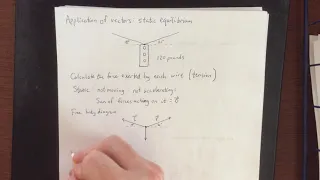 Application of vectors: static equilibrium
120 pounds
Calculate the force exerted by each wire (tension)
Static: not moving, not accelerating:
Sum of forces acting on it =
Free body diagram